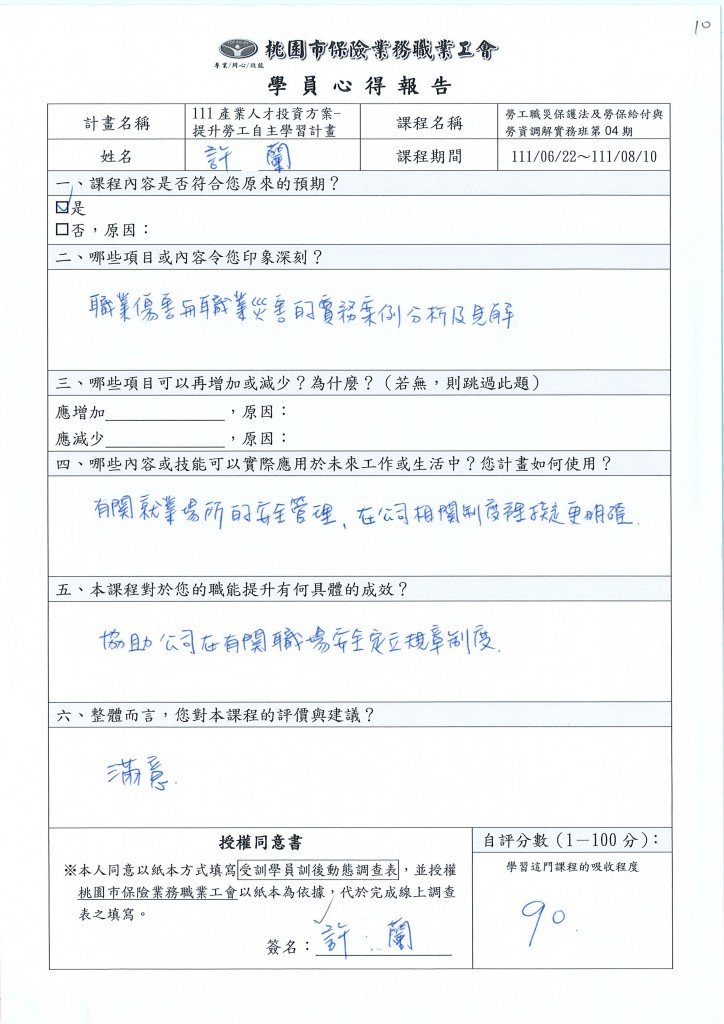 10
桃園市保險業務職業工會
專業/用心/效能
學員心得報告
計畫名稱
111產業人才投資方案-
提升勞工自主學習計畫
課程名稱
勞工職災保護法及勞保給付與
勞資調解實務班第04期
姓名
許 蘭
課程期間
111/06/22～111/08/10
一、課程內容是否符合您原來的預期？
☑是
□否，原因：
二、哪些項目或內容令您印象深刻？
職業傷害與職業災害的實務案例分析及見解
三、哪些項目可以再增加或減少？為什麼？（若無，則跳過此題）
應增加______________，原因：
應減少______________，原因：
四、哪些內容或技能可以實際應用於未來工作或生活中？您計畫如何使用？
有關就業場所的安全管理、在公司相關制度裡擬定更明確.
五、本課程對於您的職能提升有何具體的成效？
協助公司在有關職場安全定立規章制度.
六、整體而言，您對本課程的評價與建議？
滿意.
授權同意書
※本人同意以紙本方式填寫受訓學員訓後動態調查表，並授權
桃園市保險業務職業工會以紙本為依據，代於完成線上調查
表之填寫。
簽名：許 蘭
自評分數（1－100分）：
學習這門課程的吸收程度
90.